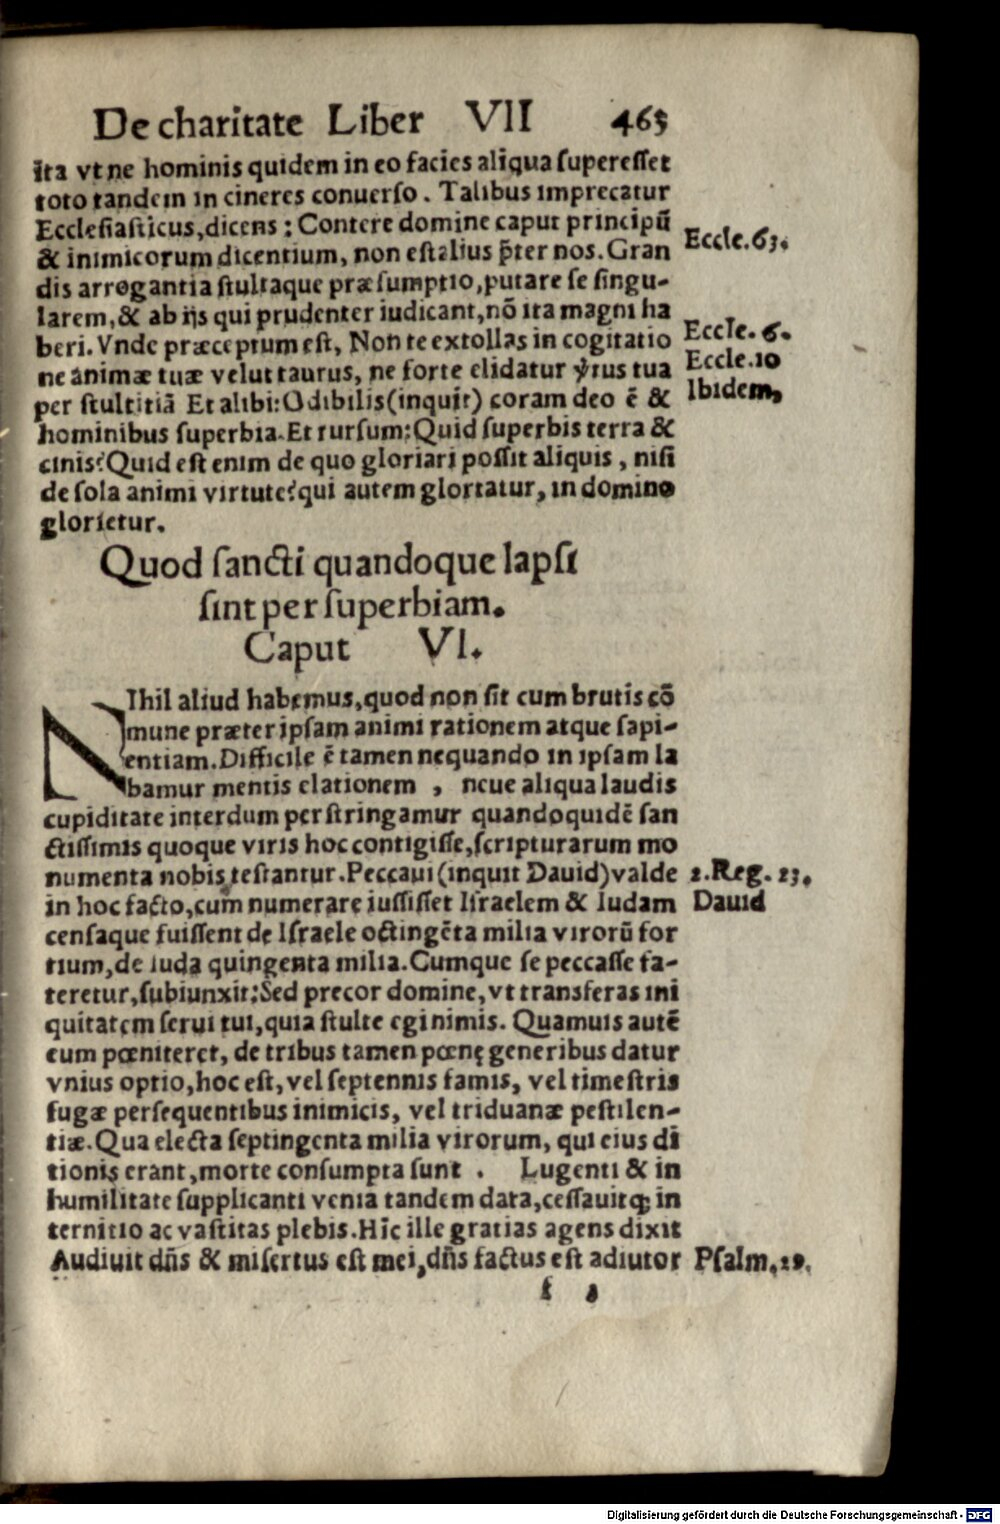 De charitate Liber VII 465
ita vt ne hominis quidem in eo facies aliqua ſupereſſet
toto tandem in cineres conuerſo. Talibus imprecatur
Eccleſiaſticus, dicens: Contere domine caput principũ
& inimicorum dicentium, non eſt alius p̃ter nos. Gran
Eccle. 63.
dis arrogantia ſtultaque præſumptio, putare ſe ſingu-
larem, & ab ijs qui prudenter iudicant, nõ ita magni ha
beri. Vnde præceptum eſt, Non te extollas in cogitatio
Eccle. 6.
ne animæ tuæ velut taurus, ne forte elidatur v̓tus tua
Eccle. 10
per ſtultitiã Et alibi: Odibilis (inquit) coram deo ẽ &
Ibidem,
hominibus ſuperbia. Et rurſum: Quid ſuperbis terra &
cinis? Quid eſt enim de quo gloriari poſſit aliquis, niſi
de ſola animi virtute? qui autem gloriatur, in domino
glorietur.
Quod ſancti quandoque lapſi
ſint per ſuperbiam.
Caput VI.
NIhil aliud habemus, quod non ſit cum brutis cõ
mune præter ipſam animi rationem atque ſapi-
entiam. Difficile ẽ tamen nequando in ipſam la
bamur mentis elationem, neue aliqua laudis
cupiditate interdum perſtringamur quandoquidẽ ſan
ctiſſimis quoque viris hoc contigiſſe, ſcripturarum mo
numenta nobis teſtantur. Peccaui (inquit Dauid) valde
2. Reg. 23.
in hoc facto, cum numerare iuſſiſſet Iſraelem & Iudam
Dauid
cenſaque fuiſſent de Iſraele octingẽta milia virorũ for
tium, de iuda quingenta milia. Cumque ſe peccaſſe fa-
teretur, ſubiunxit: Sed precor domine, vt transferas ini
quitatem ſerui tui, quia ſtulte egi nimis. Quamuis autẽ
eum pœniteret, de tribus tamen pœnę generibus datur
vnius optio, hoc eſt, vel ſeptennis famis, vel timeſtris
fugæ perſequentibus inimicis, vel triduanæ peſtilen-
tiæ. Qua electa ſeptingenta milia virorum, qui eius di
tionis erant, morte conſumpta ſunt. Lugenti & in
humilitate ſupplicanti venia tandem data, ceſſauitq; in
ternitio ac vaſtitas plebis. Hĩc ille gratias agens dixit
Audiuit dñs & miſertus eſt mei, dñs factus eſt adiutor
Pſalm. 29.
Digitalisierung gefördert durch die Deutsche Forschungsgemeinschaft - DFG